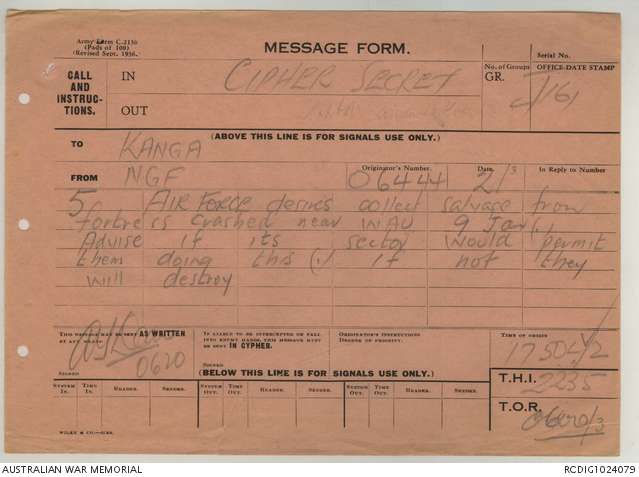 Army Form C.2136
(Pads of 100)
(Revised Sept. 1936.
MESSAGE FORM.
Serial No.
CALL
AND
INSTRUC-
TIONS.
IN
CIPHER SECRET
No. of Groups
GR.
OFFICE-DATE STAMP
OUT
(ABOVE THIS LINE IS FOR SIGNALS USE ONLY.)
TO KANGA
FROM NGF
Originator's Number. Date In Reply to Number
06444 2/3
5 AIR FORCE desires collect salvage from
fortress crashed near WAU 9 Jan (.)
Advise if its sector would permit
them doing this (.) if not they
will destroy
THIS MESSAGE MAY BE SENT AS WRITTEN
BY ANY MEANS.
0620
SIGNED
IF LIABLE TO BE INTERCEPTED OR FALL
INTO ENEMY HANDS, THIS MESSAGE MUST
BE SENT IN CYPHER.
SIGNED
ORIGINATOR'S INSTRUCTIONS
DEGREE OF PRIORITY.
TIME OF ORIGIN
1750L/2
T.H.I. 2235
T.O.R.
(BELOW THIS LINE IS FOR SIGNALS USE ONLY.)
SYSTEM IN. TIME IN. READER. SENDER. SYSTEM OUT. TIME OUT. READER. SENDER. SYSTEM OUT. TIME OUT. READER. SENDER.
WILKE & CO.
AUSTRALIAN WAR MEMORIAL
RCDIG1024079